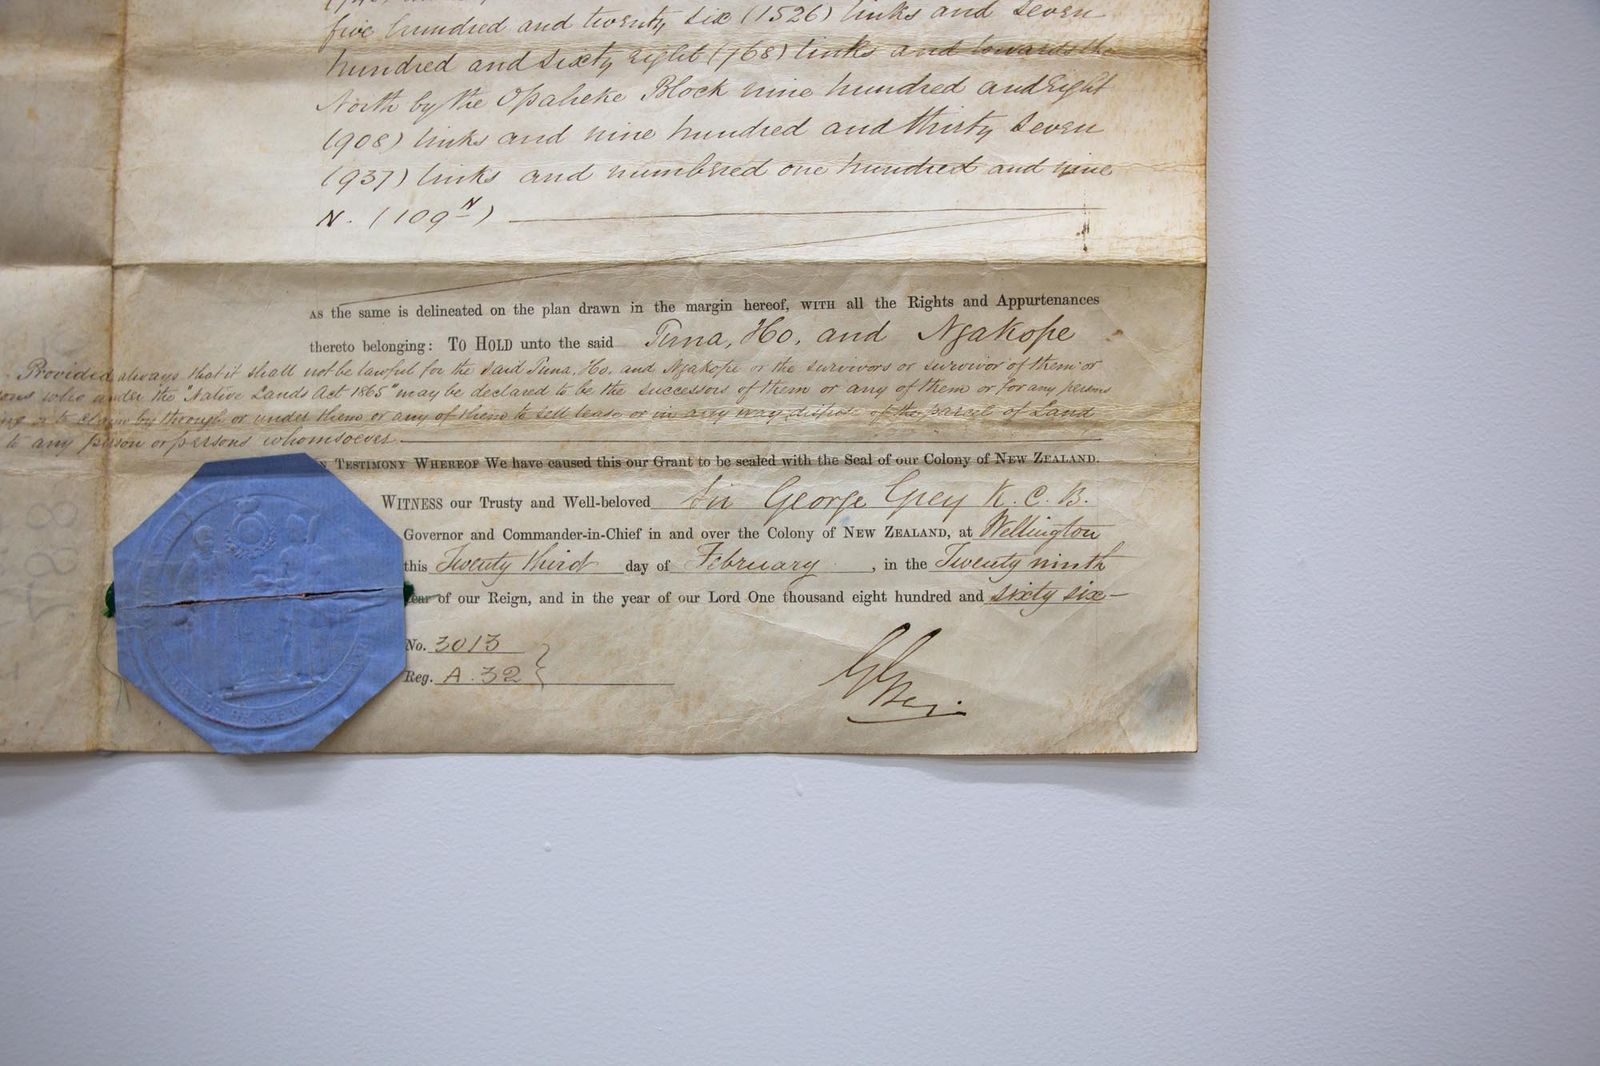 five hundred and twenty six (1526) links and seven
hundred and sixty eight (768) links and towards the
North by the Opaheke Block nine hundred and Eight
(908) links and nine hundred and thirty seven
(937) links and numbered one hundred and nine
N. (109 N)
AS the same is delineated on the plan drawn in the margin hereof, WITH all the Rights and Appurtenances
thereto belonging: TO HOLD unto the said Tuna, Ho, and Ngakope
Provided always that it shall not be lawful for the said Tuna, Ho, and Ngakope or the survivors or survivor of them or
who under the "Native Lands Act 1865" may be declared to be the successors of them or any of them or for any persons
claim by through or under them or any of them to sell lease or in any way dispose of the parcel of Land
to any person or persons whomsoever.
N TESTIMONY WHEREOF We have caused this our Grant to be sealed with the Seal of our Colony of NEW ZEALAND.
WITNESS our Trusty and Well-beloved Sir George Grey K.C.B.
Governor and Commander-in-Chief in and over the Colony of NEW ZEALAND, at Wellington
this Twenty third day of February, in the Twenty ninth
year of our Reign, and in the year of our Lord One thousand eight hundred and sixty six—
No. 3013
Reg. A. 32
G Grey.